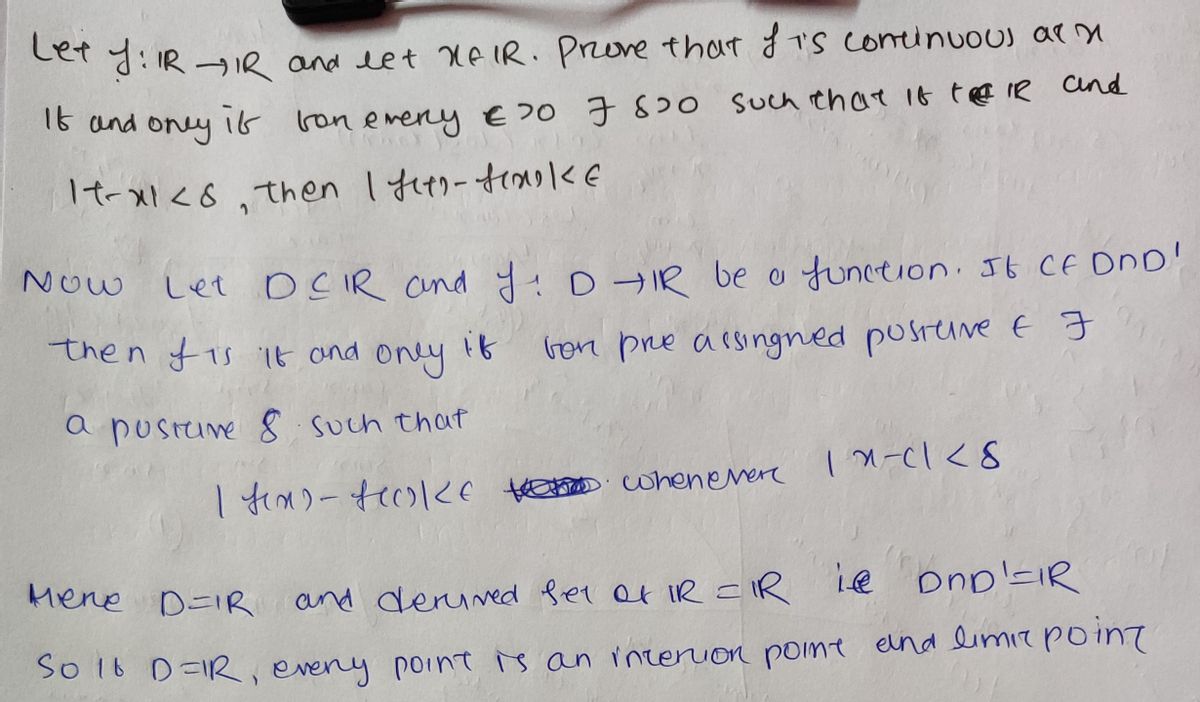 Let f: ℝ → ℝ and let x ∈ ℝ. Prove that f is continuous at x
If and only if for every ϵ > 0 ∃ δ > 0 such that if t ∈ ℝ and
|t-x| < δ, then |f(t) - f(x)| < ϵ
Now Let D ⊆ ℝ and f: D → ℝ be a function. If c ∈ D∩D'
then f is if and only if for pre assingned positive ϵ ∃
a positive δ such that
|f(x) - f(c)| < ϵ whenever |x-c| < δ
Here D=ℝ and derived set of ℝ = ℝ ie D∩D'=ℝ
So if D=ℝ, every point is an interior point and limit point